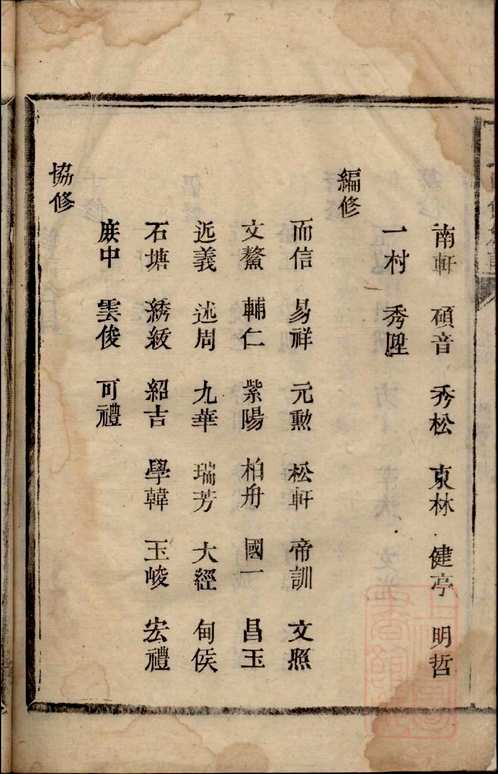 南軒 碩音 秀松 東林 健亭 明哲
一村 秀陞
編修
而信 易祥 元勲 松軒 帝訓 文照
文鰲 輔仁 紫陽 柏舟 國一 昌玉
近義 述周 九華 瑞芳 大經 甸侯
石塘 綉紱 紹吉 學韓 玉峻 宏禮
族中 雲俊 可禮
協修